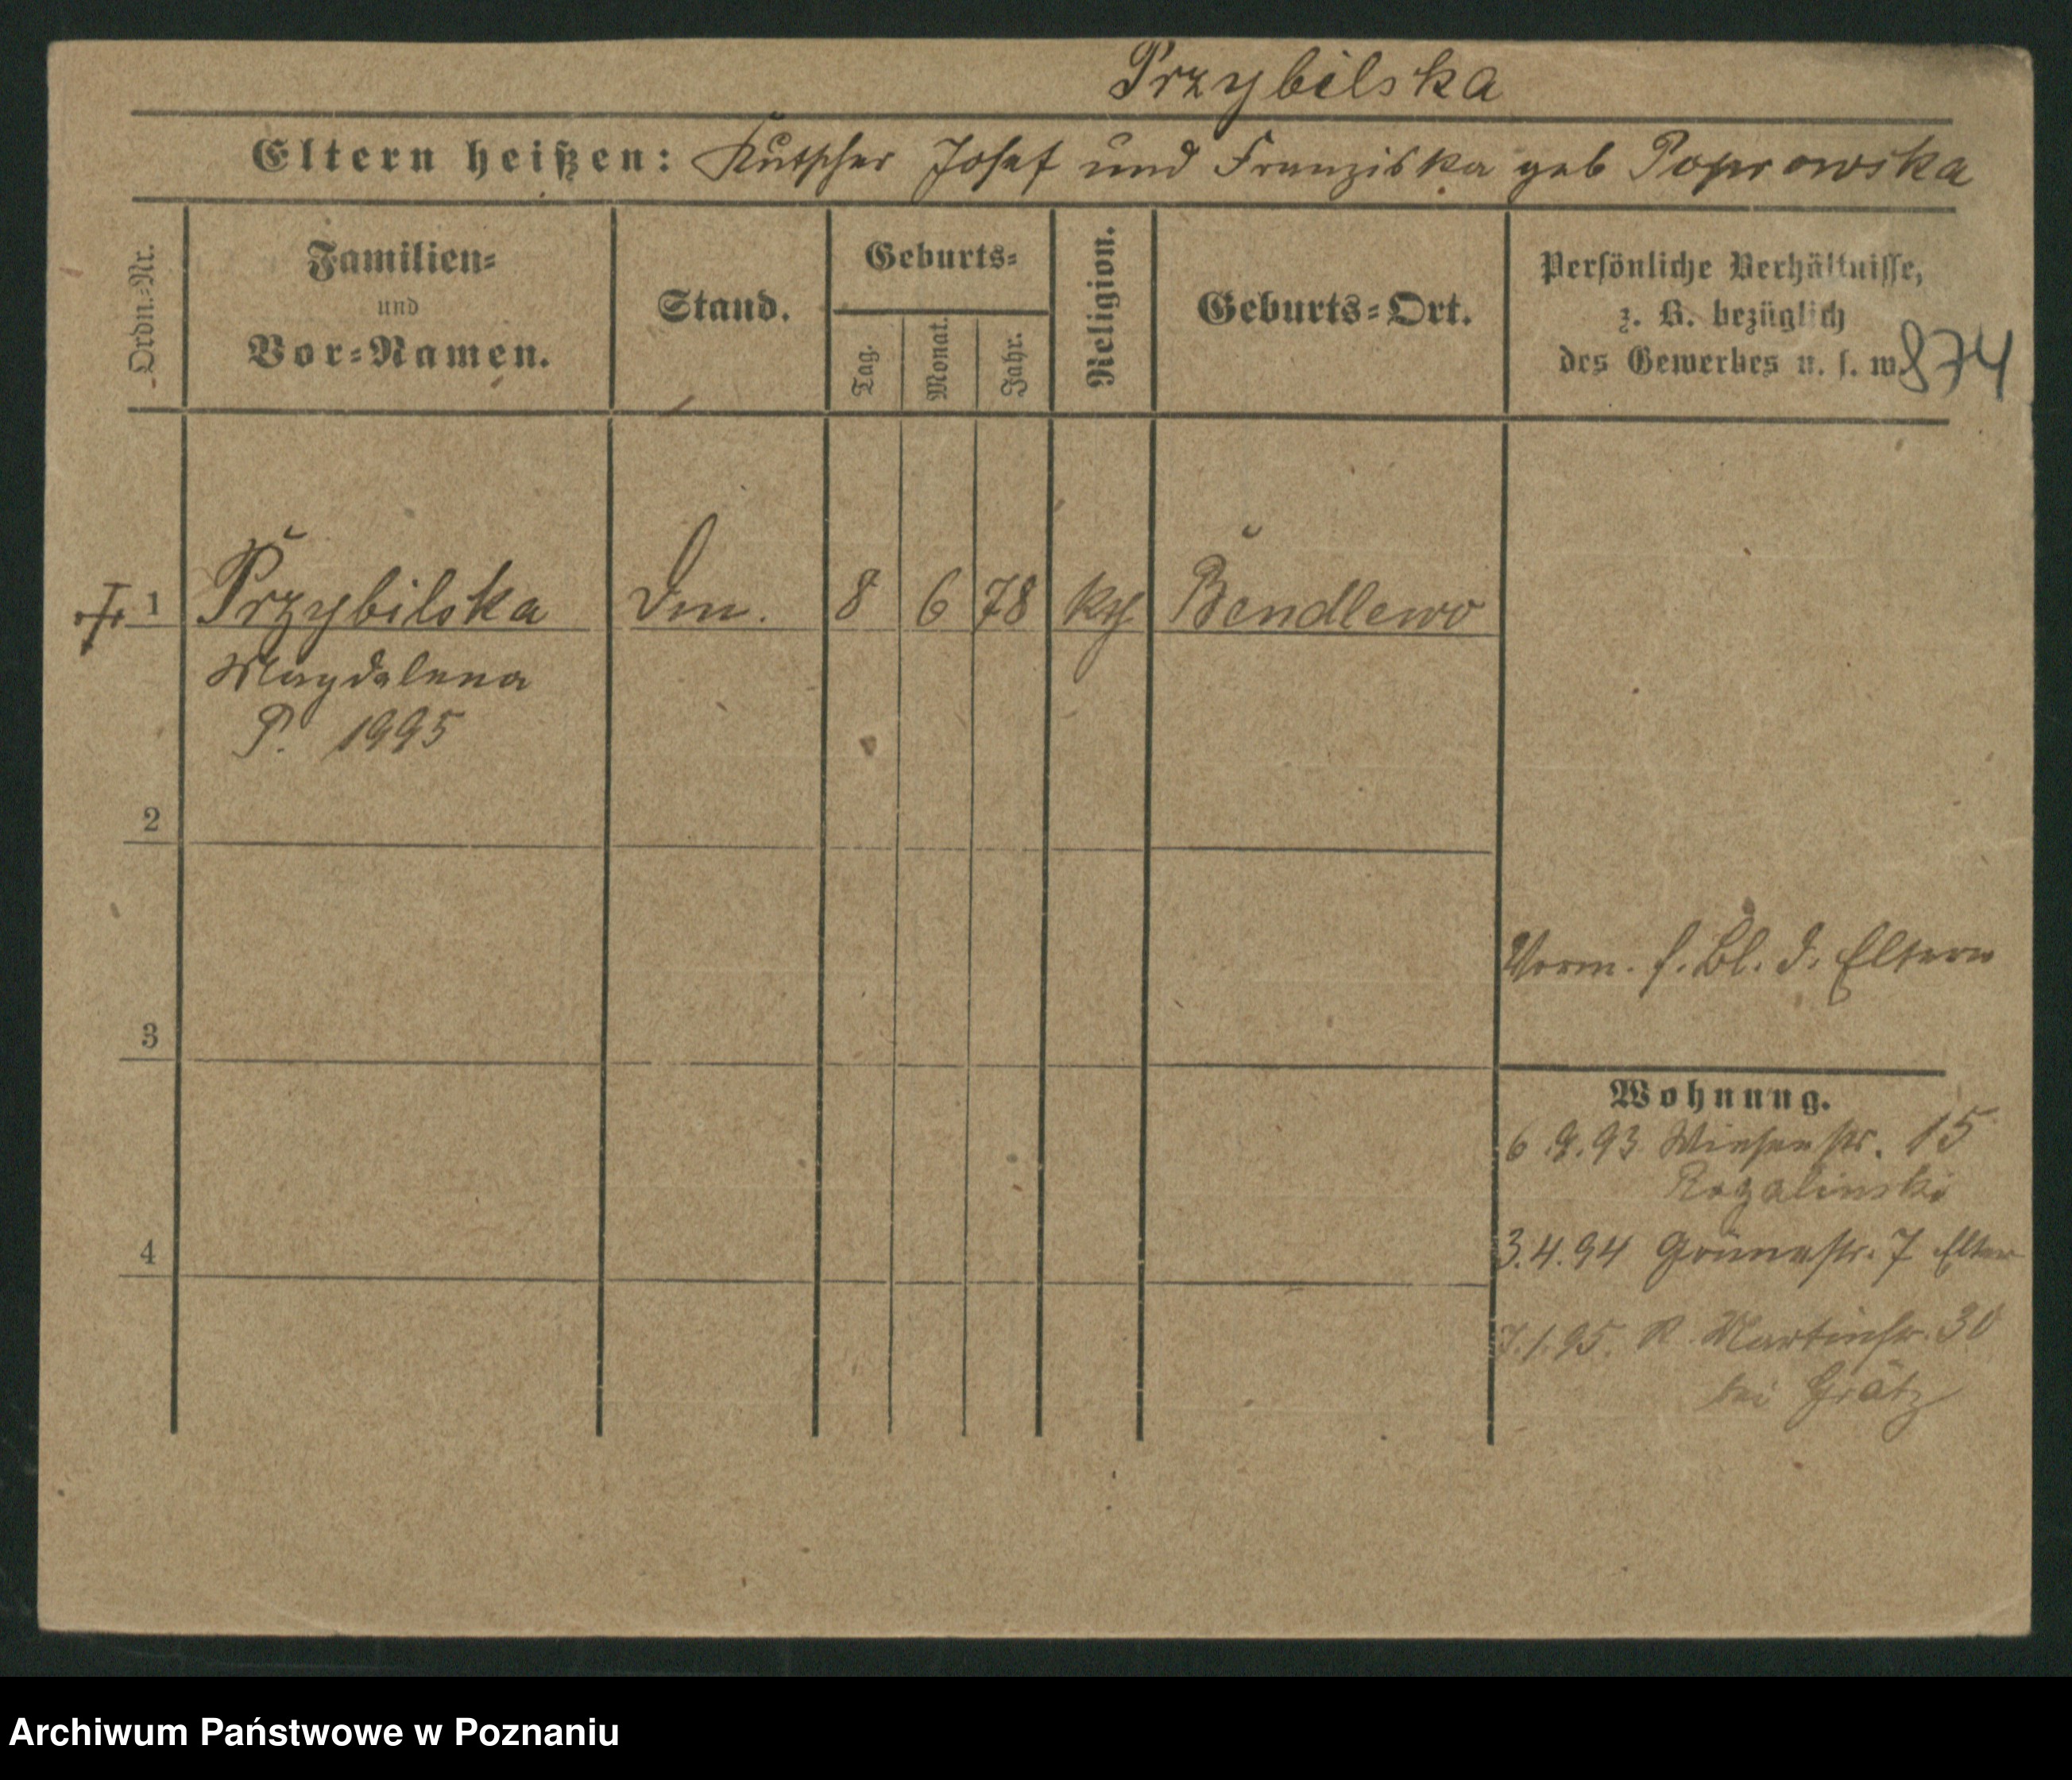 Przybilska
Eltern heißen: Kutscher Josef und Franziska geb Poprowska
Ordn.-Nr.
Familien-
und
Vor-Namen.
Stand.
Geburts-
Tag.
Monat.
Jahr.
Religion.
Geburts-Ort.
Persönliche Verhältnisse,
z. B. bezüglich
des Gewerbes u. s. w.
874
1 Przybilska 8 6 78 Bendlewo
Magdalena
P. 1995
2
3
4
Vorm. s. Bl. d. Eltern
Wohnung.
6.9.93 Wiesenstr. 15
Rogalinski
3.4.94 Grünestr. 7 Eltern
7.1.95. R. Martinstr. 30
bei Grätz
Archiwum Państwowe w Poznaniu